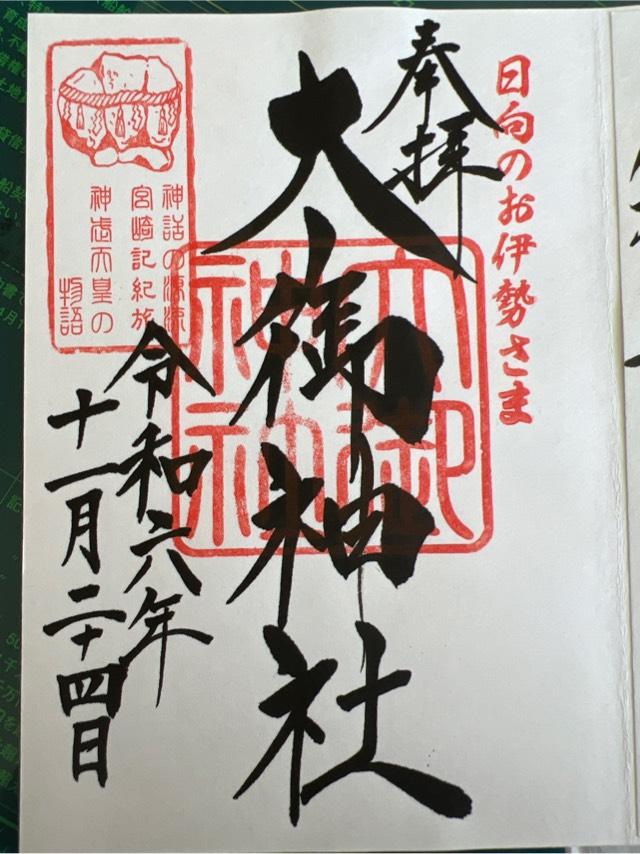 日向のお伊勢さま
奉拝
大御神社
大御神社
神話の源流
宮崎記紀旅
神武天皇の
物語
令和六年
十一月二十四日